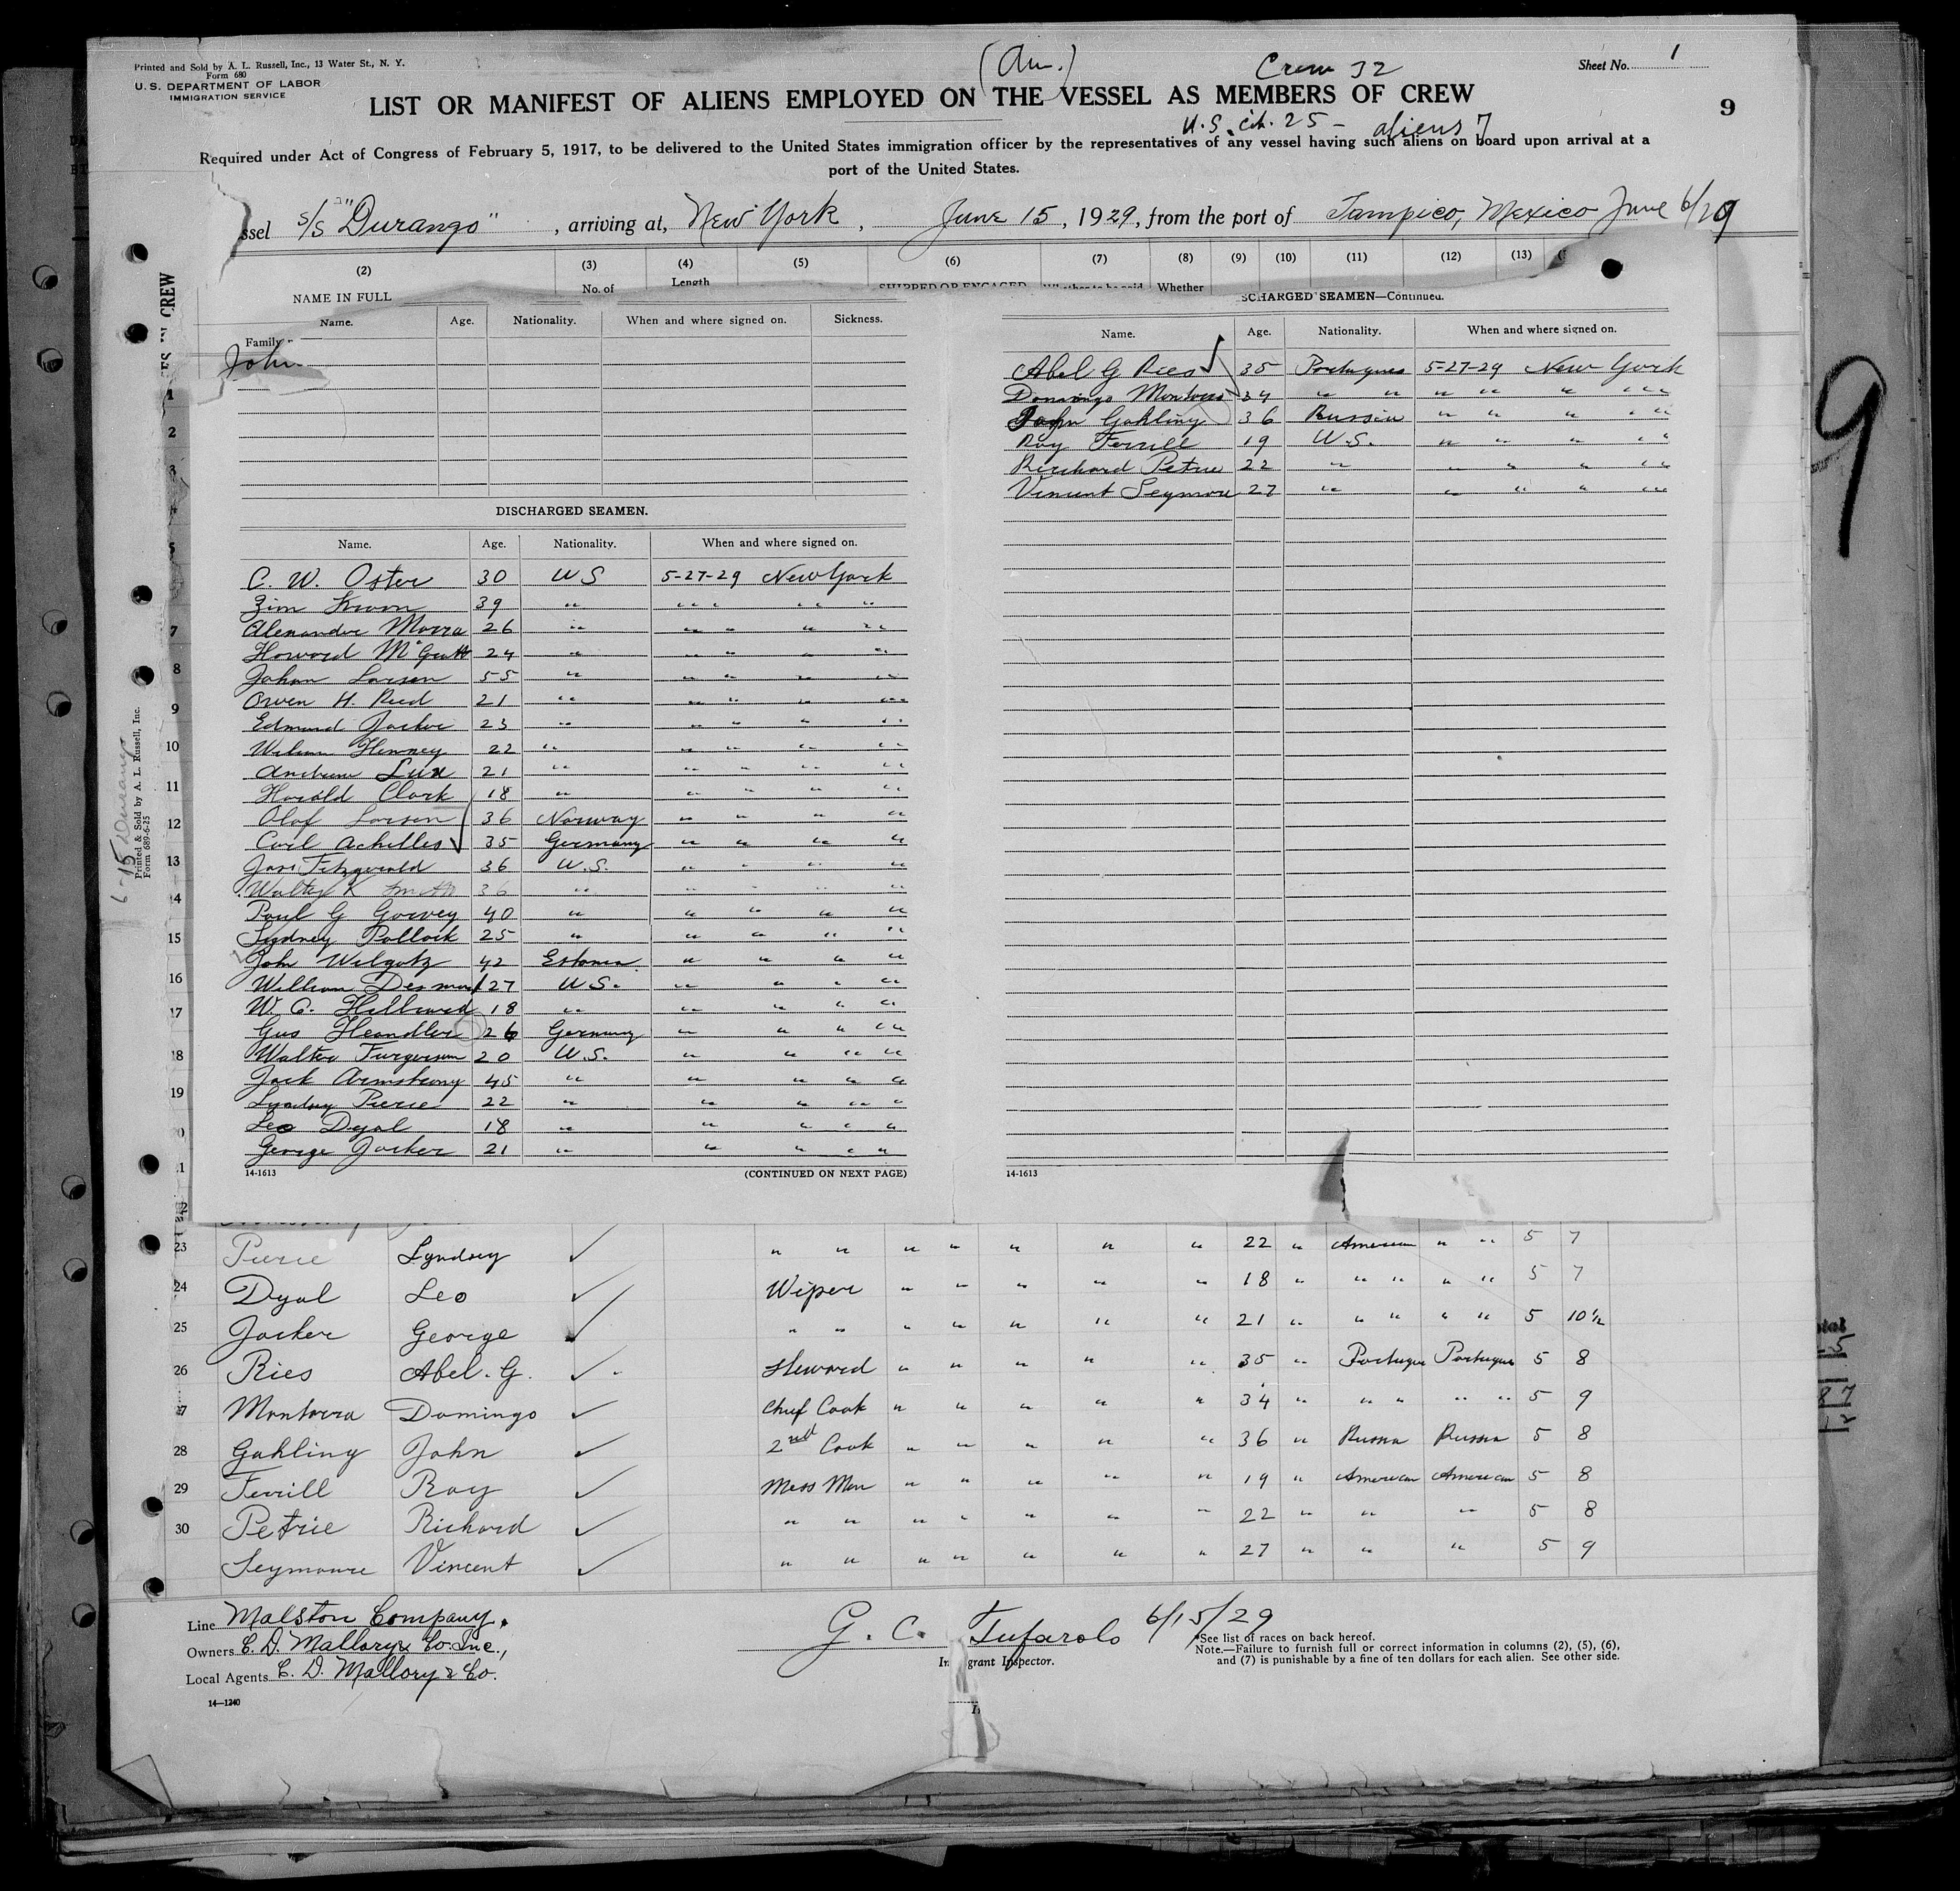 Printed and Sold by A. L. Russell, Inc., 13 Water St., N. Y.
Form 680
U. S. DEPARTMENT OF LABOR
IMMIGRATION SERVICE
(Am.)
Crew 32
Sheet No. 1
LIST OR MANIFEST OF ALIENS EMPLOYED ON THE VESSEL AS MEMBERS OF CREW
9
U.S. cit. 25 - aliens 7
Required under Act of Congress of February 5, 1917, to be delivered to the United States immigration officer by the representatives of any vessel having such aliens on board upon arrival at a
port of the United States.
ssel S/S "Durango", arriving at, New York, June 15, 1929, from the port of Tampico, Mexico June 6/29
(2) (3) (4) (5) (6) (7) (8) (9) (10) (11) (12) (13)
No. of Length SHIPPED OR ENGAGED Whether to be paid Whether
NAME IN FULL
Name. Age. Nationality. When and where signed on. Sickness.
Family
John
DISCHARGED SEAMEN.
Name. Age. Nationality. When and where signed on.
C. W. Oster 30 U S 5-27-29 New York
39 " " " " "
Alexander Morra 26 " " " " "
Howard 24 " " " " "
Johan Larsen 55 " " " " "
Owen H. Reed 21 " " " " "
Edmund Jacker 23 " " " " "
22 " " " " "
Andrew Lux 21 " " " " "
Harold Clark 18 " " " " "
Olaf Larsen 36 Norway " " " "
Carl Achilles 35 Germany " " " "
Jas. Fitzgerald 36 U.S. " " " "
Walter K 36 " " " " "
Paul G Garvey 40 " " " " "
Sydney Pollock 25 " " " " "
John 42 Estonia " " " "
William Desmond 27 U.S. " " " "
W. C. 18 " " " " "
Gus Heandler 26 Germany " " " "
Walter Furgerson 20 U.S. " " " "
Jack Armstrong 45 " " " " "
Lyndsey Pierie 22 " " " " "
Leo Dyal 18 " " " " "
George Jacker 21 " " " " "
14-1613 (CONTINUED ON NEXT PAGE)
SCHARGED SEAMEN—Continued.
Name. Age. Nationality. When and where signed on.
Abel G Ries 35 Portugues 5-27-29 New York
Domingo 34 " " " " " "
John Gahling 36 Russia " " " "
Roy Ferrill 19 U.S. " " " "
Petrie 22 " " " " "
Vincent Seymoure 27 " " " " "
14-1613
CREW
1
2
3
4
5
7
8
9
10
11
12
13
14
15
16
17
18
19
0
1
2
6-15 Durango
Printed & Sold by A. L. Russell, Inc.
Form 689-6-25
23 Pierie Lyndsey ✓ " " " " " " " 22 " American " " 5 7
24 Dyal Leo ✓ Wiper " " " " " 18 " " " " " 5 7
25 Jacker George ✓ " " " " " " " 21 " " " " " 5 10½
26 Ries Abel. G. ✓ Steward " " " " " 35 " Portugue Portugue 5 8
27 Domingo ✓ Chief Cook " " " " " 34 " " " " " 5 9
28 Gahling John ✓ 2nd Cook " " " " " 36 " Russia Russia 5 8
29 Ferrill Roy ✓ Mess Man " " " " " 19 " American American 5 8
30 Petrie Richard ✓ " " " " " " " 22 " " " 5 8
Seymoure Vincent ✓ " " " " " " " 27 " " " 5 9
Line Malston Company.
Owners C. D. Mallory & Co. Inc.,
Local Agents C. D. Mallory & Co.
14—1240
G. C. Tufarolo 6/15/29
Immigrant Inspector.
*See list of races on back hereof.
Note.—Failure to furnish full or correct information in columns (2), (5), (6),
and (7) is punishable by a fine of ten dollars for each alien. See other side.
9